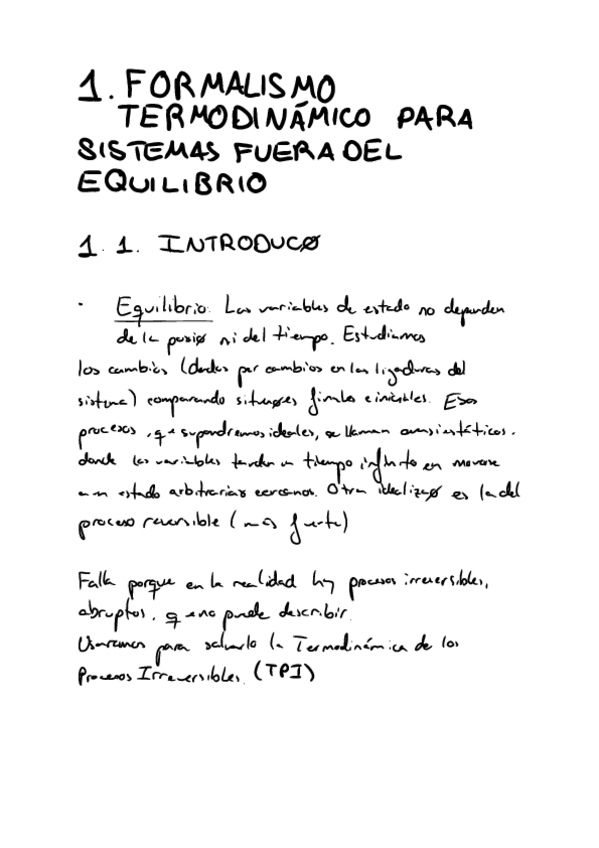 1. FORMALISMO
TERMODINÁMICO PARA
SISTEMAS FUERA DEL
EQUILIBRIO
1.1. INTRODUCØ
· Equilibrio: Las variables de estado no dependen
de la posiø ni del tiempo. Estudiamos
los cambios (dados por cambios en las ligaduras del
sistema) comparando finales e iniciales. Esos
procesos, que supondremos ideales, se llaman cuasiestáticos.
donde las variables tardan un tiempo infinito en moverse
a un estado arbitrario cercano. Otra idealizaø es la del
proceso reversible (más fuerte)
Falla porque en la realidad hay procesos irreversibles,
abruptos, que no puede describir.
Usaremos para salvarlo la Termodinámica de los
Procesos Irreversibles. (TPI)